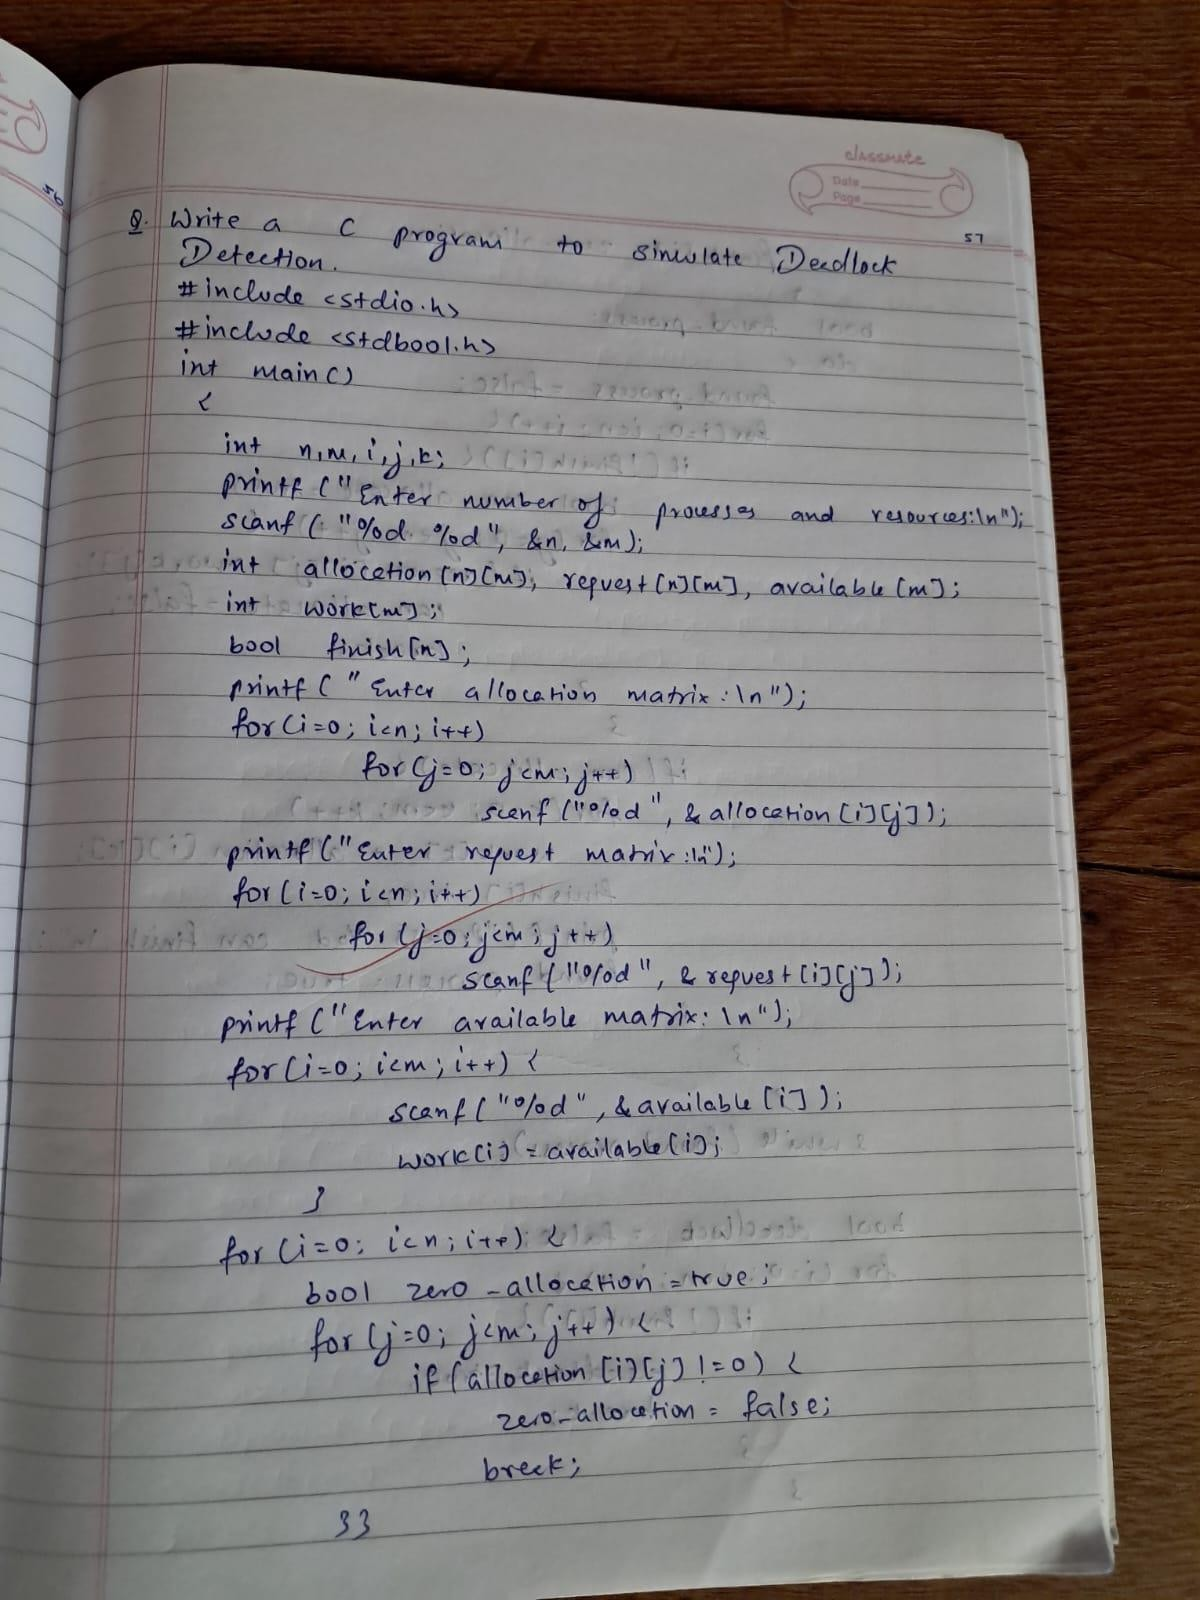 56
classmate
Date
Page
57
Q. Write a C program to simulate Deadlock
Detection.
#include <stdio.h>
#include <stdbool.h>
int main()
{
int n,m,i,j,k;
printf ("Enter number of processes and resources:\n");
scanf ("%d %d", &n, &m);
int allocation[n][m], request[n][m], available[m];
int work[m];
bool finish[n];
printf ("Enter allocation matrix:\n");
for(i=0; i<n; i++)
for(j=0; j<m; j++)
scanf ("%d", &allocation[i][j]);
printf ("Enter request matrix:\n");
for(i=0; i<n; i++)
for(j=0; j<m; j++)
scanf ("%d", &request[i][j]);
printf ("Enter available matrix:\n");
for(i=0; i<m; i++) {
scanf ("%d", &available[i]);
work[i] = available[i];
}
for(i=0; i<n; i++) {
bool zero_allocation = true;
for(j=0; j<m; j++) {
if(allocation[i][j] != 0) {
zero_allocation = false;
break;
}}